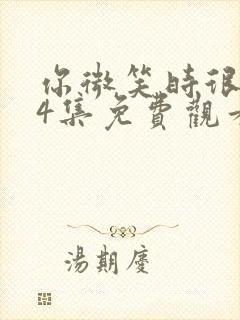 你微笑時很
4集免費觀
湯期慶